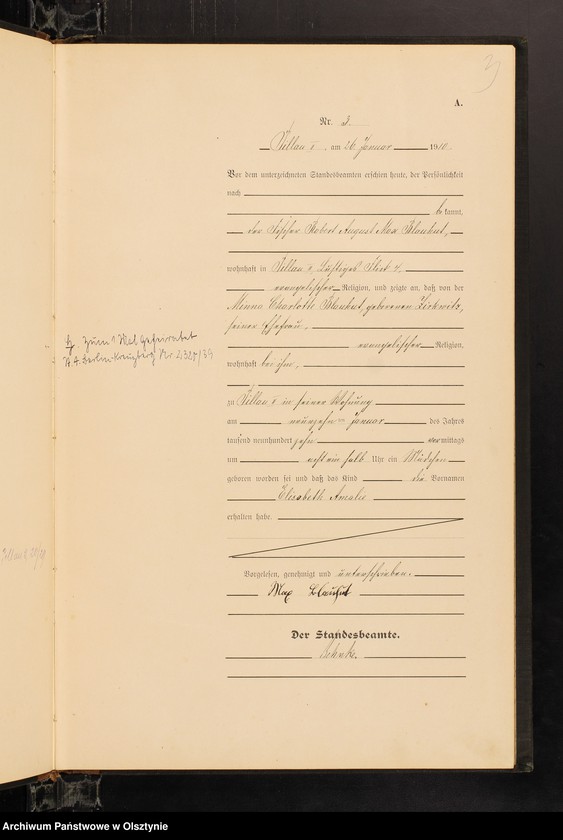 3
A.
Nr. 3
Pillau II, am 26. Januar 1910.
Vor dem unterzeichneten Standesbeamten erschien heute, der Persönlichkeit
nach
be kannt,
der Fischer Robert August Max Blankut,
wohnhaft in Pillau II,
evangelischer Religion, und zeigte an, daß von der
Minna Charlotte Blankut, geborenen Zirkwitz,
seiner Ehefrau,
evangelischer Religion,
wohnhaft bei ihm,
zu Pillau II in seiner Wohnung
am neunzehnten Januar des Jahres
tausend neunhundert zehn mittags
um acht ein halb Uhr ein Mädchen
geboren worden sei und daß das Kind die Vornamen
Elisabeth Amalie
erhalten habe.
Vorgelesen, genehmigt und unterschrieben.
Max Blankut
Der Standesbeamte.
zum 1 Mal geheiratet
St. A. Berlin-Kreuzberg Nr.
Archiwum Państwowe w Olsztynie